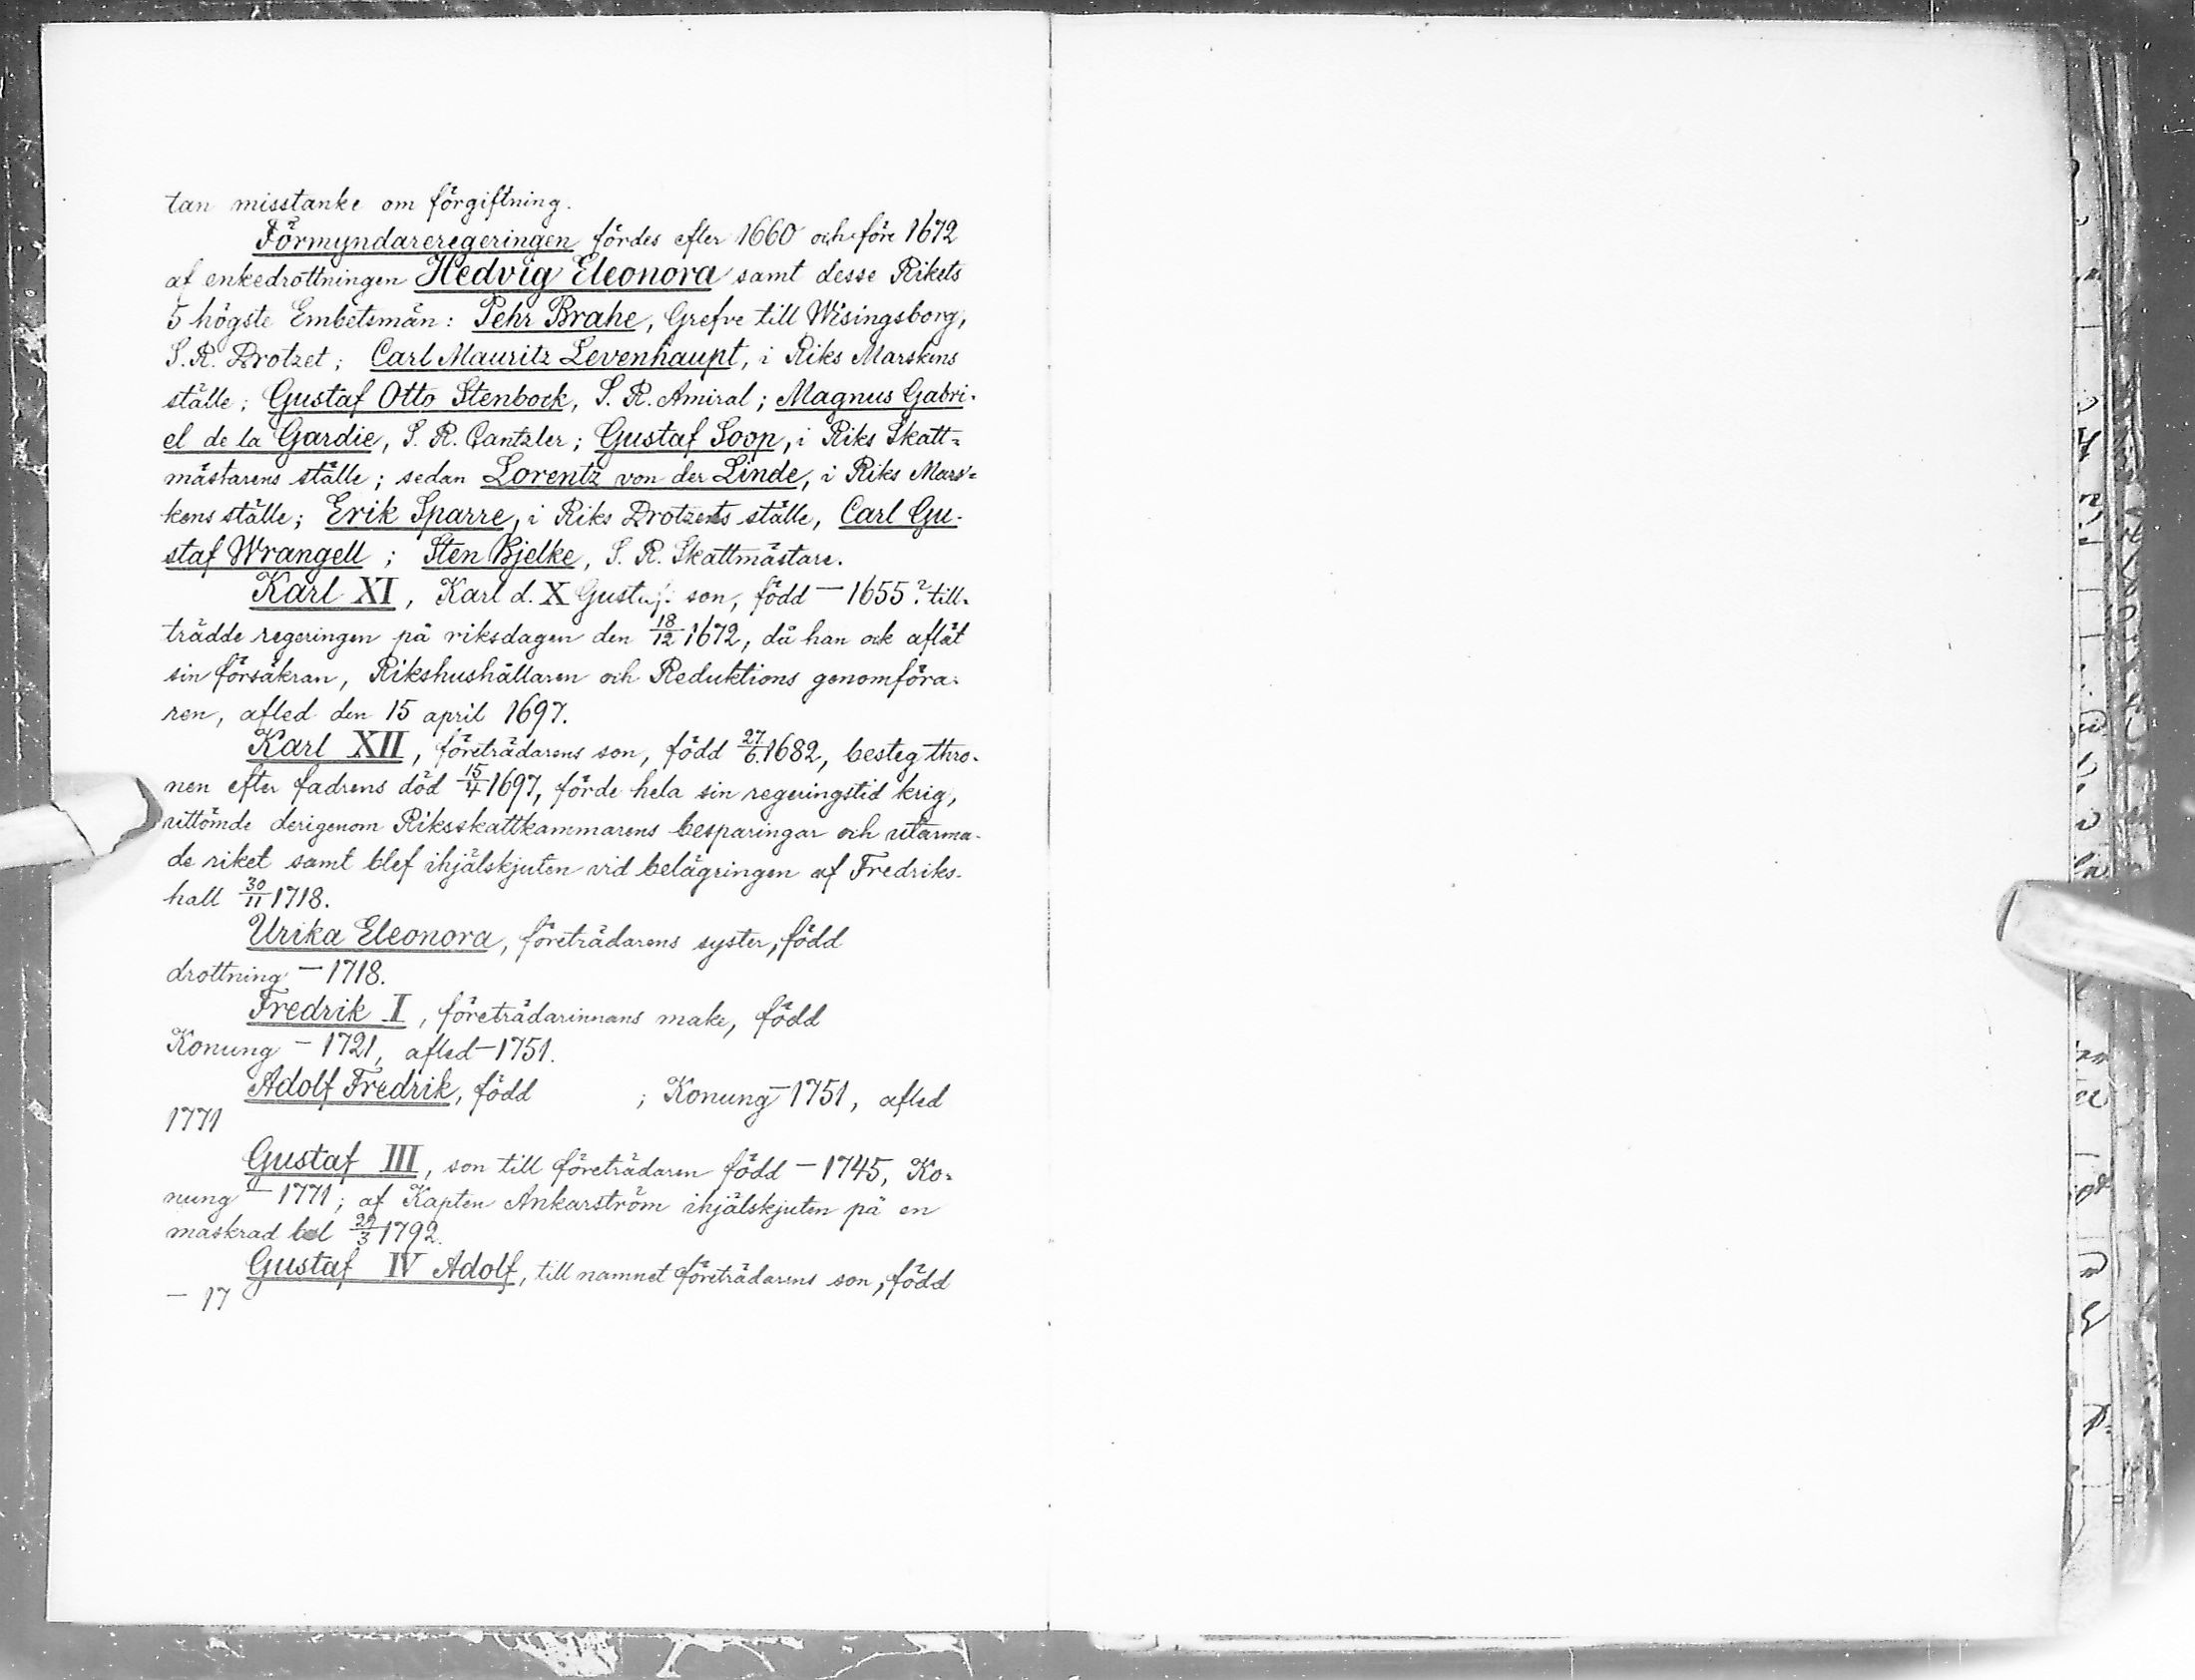 tan misstanke om förgiftning.
Förmyndareregeringen fördes efter 1660 och före 1672
af enkedrottningen Hedvig Eleonora samt desse Rikets
5 högste Embetsmän: Pehr Brahe, Grefve till Wisingsborg,
S. R. Drotzet; Carl Mauritz Levenhaupt, i Riks Marskens
ställe; Gustaf Otto Stenbock, S. R. Amiral; Magnus Gabri-
el de la Gardie, S. R. Cantzler; Gustaf Soop, i Riks Skatt=
mästarens ställe; sedan Lorentz von der Linde, i Riks Mars=
kens ställe; Erik Sparre, i Riks Drotzents ställe, Carl Gu-
staf Wrangell; Sten Bjelke, S. R. Skattmästare.
Karl XI, Karl d. X Gustafs son, född — 1655? till-
trädde regeringen på riksdagen den 18/12 1672, då han ock aflät
sin försäkran, Rikshushållaren och Reduktions genomföra-
ren, afled den 15 april 1697.
Karl XII, företrädarens son, född 27/6 1682, besteg thro-
nen efter fadrens död 15/4 1697, förde hela sin regeringstid krig,
uttömde derigenom Riksskattkammarens besparingar och utarma-
de riket samt blef ihjälskjuten vid belägringen af Fredriks-
hall 30/11 1718.
Urika Eleonora, företrädarens syster, född
drottning — 1718.
Fredrik I, företrädarinnans make, född
Konung — 1721, afled — 1751.
Adolf Fredrik, född ; Konung — 1751, afled
1771
Gustaf III, son till företrädaren född — 1745, Ko-
nung — 1771; af Kapten Ankarström ihjälskjuten på en
maskrad bal 29/3 1792.
Gustaf IV Adolf, till namnet företrädarens son, född
— 17